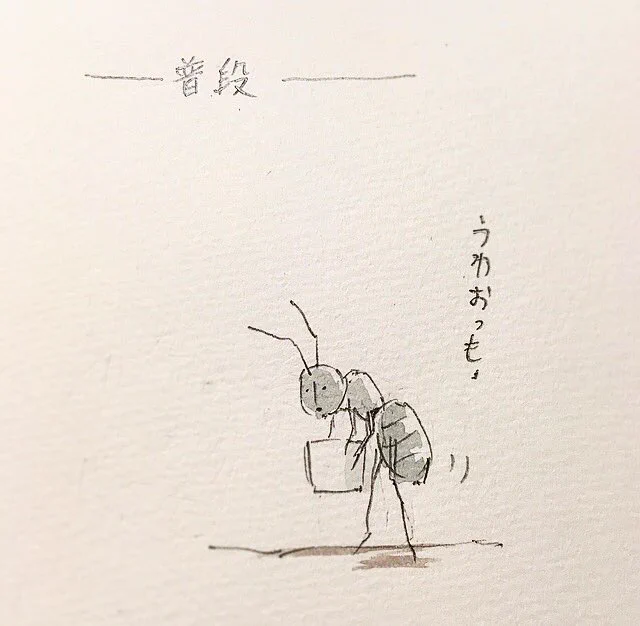 普段
うわおっも。